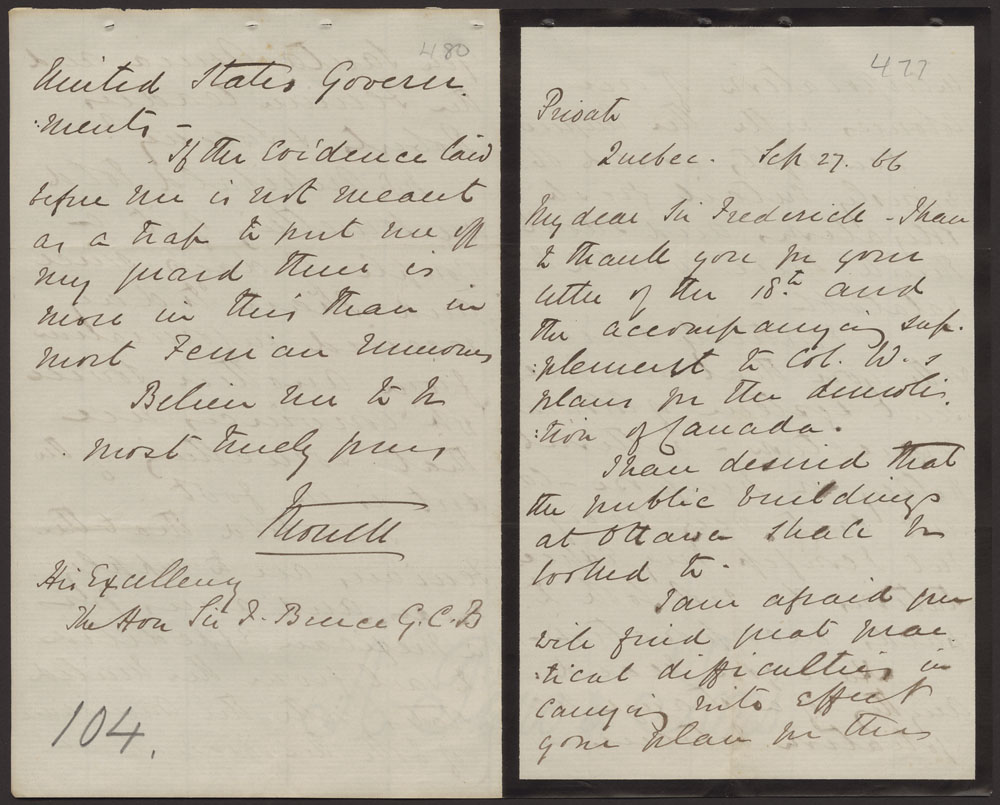 480
United States Govern
:ments -
If the Evidence laid
before me is not meant
as a trap to put me off
my guard there is
more in this than in
most Fenian rumours
Believe me to be
most truly yours
Monck
His Excellency
The Hon Sir F. Bruce G.C.B
104.
477
Private
Quebec. Sep 27. 66
My dear Sir Frederick - I have
to thank you for your
letter of the 18th and
the accompanying sup-
:plement to Col. W.s
plans for the demoli-
:tion of Canada.
I have desired that
the public buildings
at Ottawa shall be
looked to.
I am afraid you
will find great prac-
:tical difficulties in
carrying into effect
your plan for the